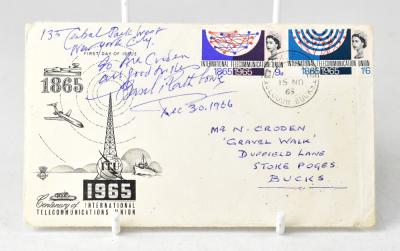 135 Central Park West
New York City.
FIRST DAY OF ISSUE
To Mrs Croden
all good wishes
Dec 30. 1966
1865
1965
Centenary of INTERNATIONAL
TELECOMMUNICATIONS UNION
INTERNATIONAL TELECOMMUNICATION UNION
1865 1965 9D
INTERNATIONAL TELECOMMUNICATION UNION
1865 1965 1/6
15 NO
65
MR N. CRODEN
'GRAVEL WALK'
DUFFIELD LANE
STOKE POGES.
BUCKS.